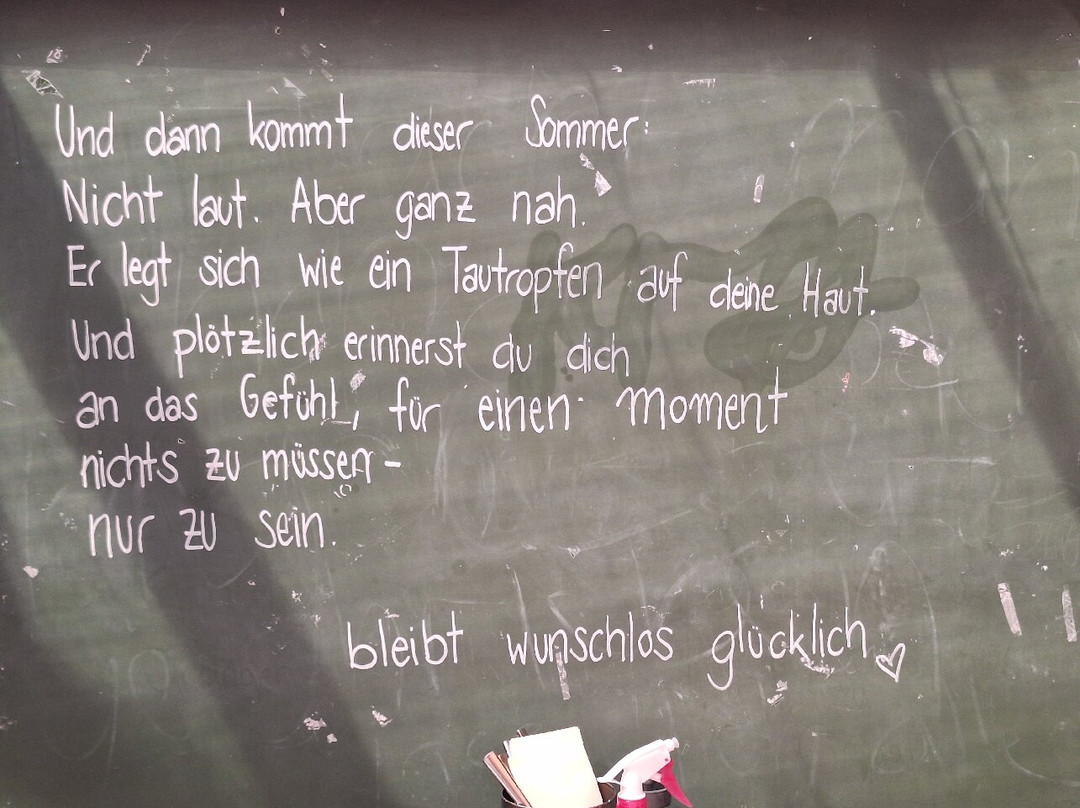 Und dann kommt dieser Sommer:
Nicht laut. Aber ganz nah.
Er legt sich wie ein Tautropfen auf deine Haut.
Und plötzlich erinnerst du dich
an das Gefühl, für einen Moment
nichts zu müssen -
nur zu sein.
bleibt wunschlos glücklich ♡